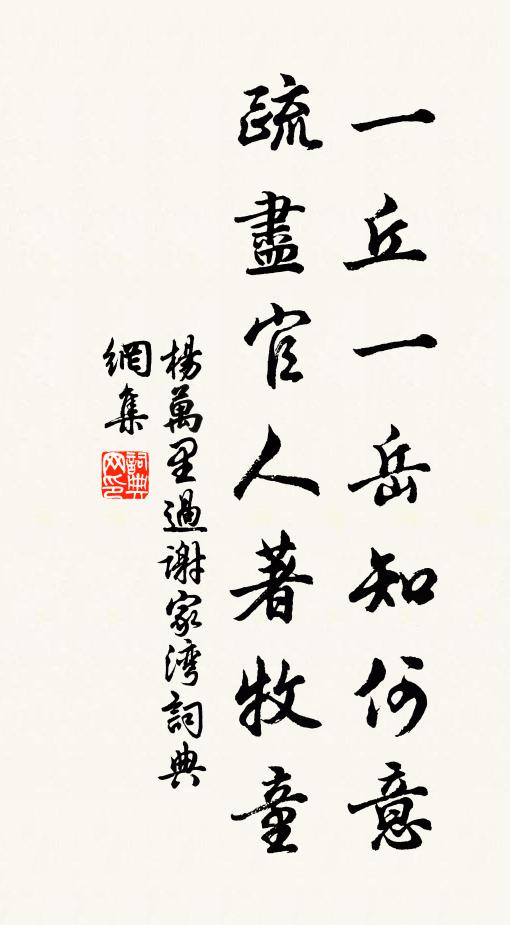 一丘一岳知何意
疏盡官人著牧童
楊萬里過謝家灣詞典
網集
詞典網印